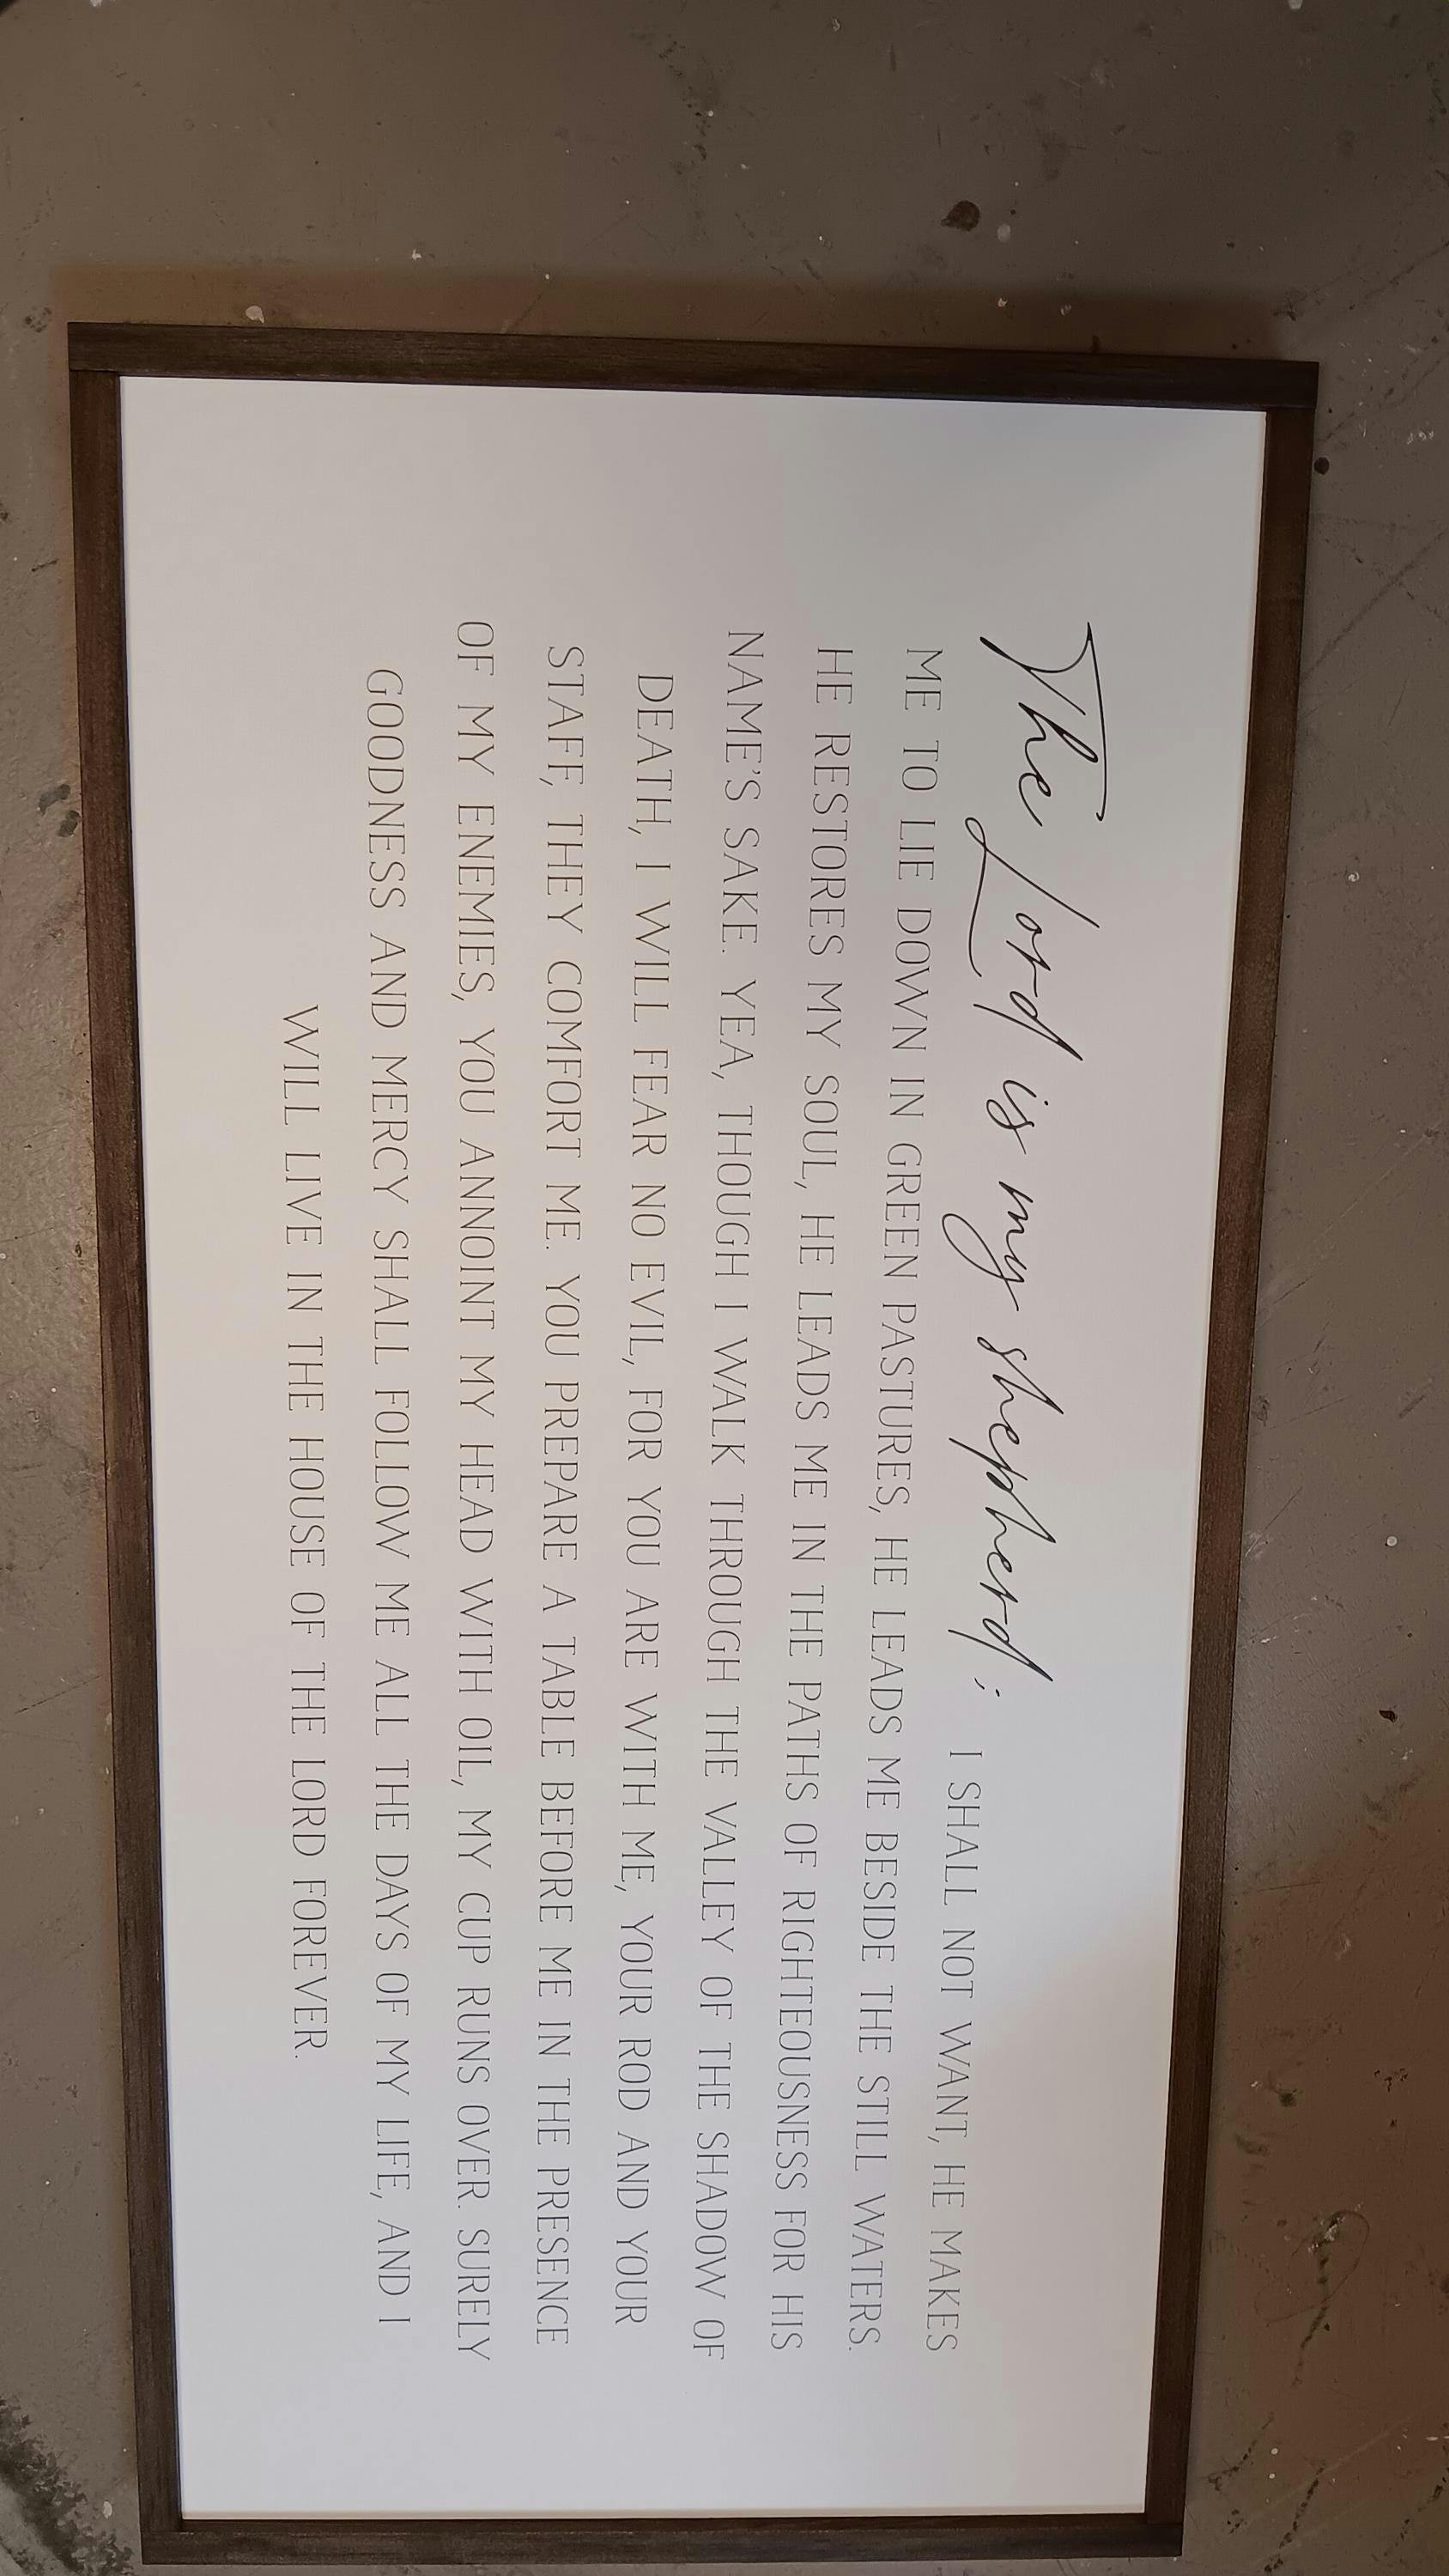 The Lord is my shepherd; I SHALL NOT WANT, HE MAKES
ME TO LIE DOWN IN GREEN PASTURES, HE LEADS ME BESIDE THE STILL WATERS.
HE RESTORES MY SOUL, HE LEADS ME IN THE PATHS OF RIGHTEOUSNESS FOR HIS
NAME'S SAKE. YEA, THOUGH I WALK THROUGH THE VALLEY OF THE SHADOW OF
DEATH, I WILL FEAR NO EVIL, FOR YOU ARE WITH ME, YOUR ROD AND YOUR
STAFF, THEY COMFORT ME. YOU PREPARE A TABLE BEFORE ME IN THE PRESENCE
OF MY ENEMIES, YOU ANNOINT MY HEAD WITH OIL, MY CUP RUNS OVER. SURELY
GOODNESS AND MERCY SHALL FOLLOW ME ALL THE DAYS OF MY LIFE, AND I
WILL LIVE IN THE HOUSE OF THE LORD FOREVER.